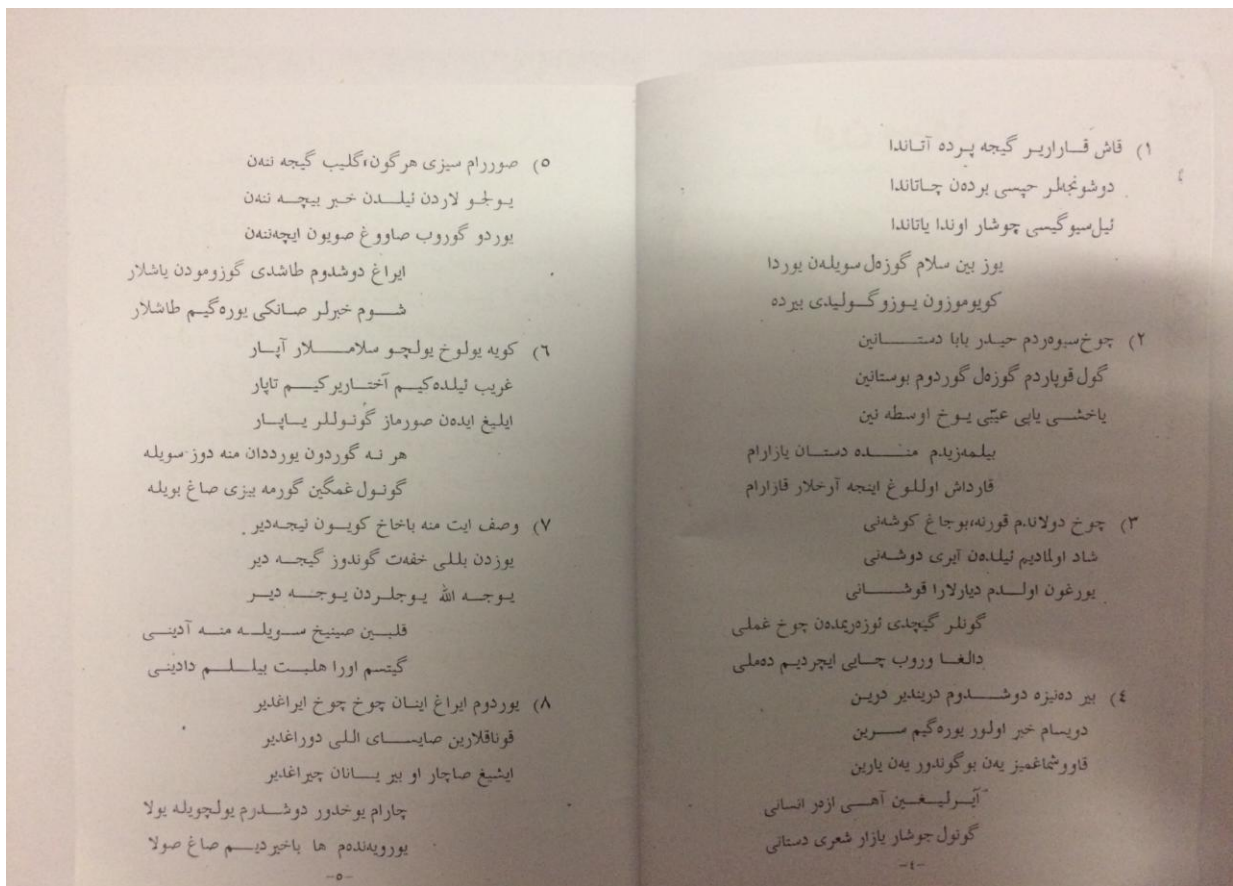 ١) قاش قاراریر گیجه پرده آتاندا
دوشونجه‌لر حپسی بردەن چاتاندا
ئیل‌سیوگیسی چوشار اوندا یاتاندا
یوز بین سلام گوزەل سویلەن یوردا
کویوموزون یوزو گولیدی بیرده
٢) چوخ‌سیوەردم حیدر بابا دستانین
گول قوپاردم گوزەل گوردوم بوستانین
یاخشی یاپی عیّبی یوخ اوسطه نین
بیلمەزیدم منده دستان یازارام
قارداش اوللوغ اینجه آرخلار قازارام
٣) چوخ دولاندم قورنه،بوجاغ کوشەنی
شاد اولمادیم ئیلدەن آیری دوشەنی
یورغون اولدم دیارلارا قوشانی
گونلر گیچدی ئوزەریمدەن چوخ غملی
دالغا وروب چایی ایچردیم دەملی
٤) بیر دەنیزه دوشدوم دریندیر درین
دویسام خبر اولور یورەگیم سرین
قاووشماغمیز یەن بوگوندور یەن یارین
آیرلیغین آهی ازدر انسانی
گونول جوشار یازار شعری دستانی
-٤-
٥) صوررام سیزی هرگون،گلیب گیجه ننەن
یولجو لاردن ئیلدن خبر بیچه ننەن
یوردو گوروب صاووغ صویون ایچەننەن
ایراغ دوشدوم طاشدی گوزومودن یاشلار
شوم خبرلر صانکی یورەگیم طاشلار
٦) کویه یولوخ یولچو سلاملار آپار
غریب ئیلدەکیم آختاریرکیم تاپار
ایلیغ ایدەن صورماز گونوللر یاپار
هر نه گوردون یورددان منه دوز سویله
گونول غمگین گورمه بیزی صاغ بویله
٧) وصف ایت منه باخاخ کویون نیجەدیر
یوزدن بللی خفەت گوندوز گیجه دیر
یوجه الله یوجلردن یوجه دیر
قلبین صینیخ سویله منه آدینی
گیتسم اورا هلبت بیللم دادینی
٨) یوردوم ایراغ اینان چوخ چوخ ایراغدیر
قوناقلارین صایسای اللی دوراغدیر
ایشیغ صاچار او بیر یانان چیراغدیر
چارام یوخدور دوشدرم یولچویله یولا
یورویەندەم ها باخیردیم صاغ صولا
-٥-